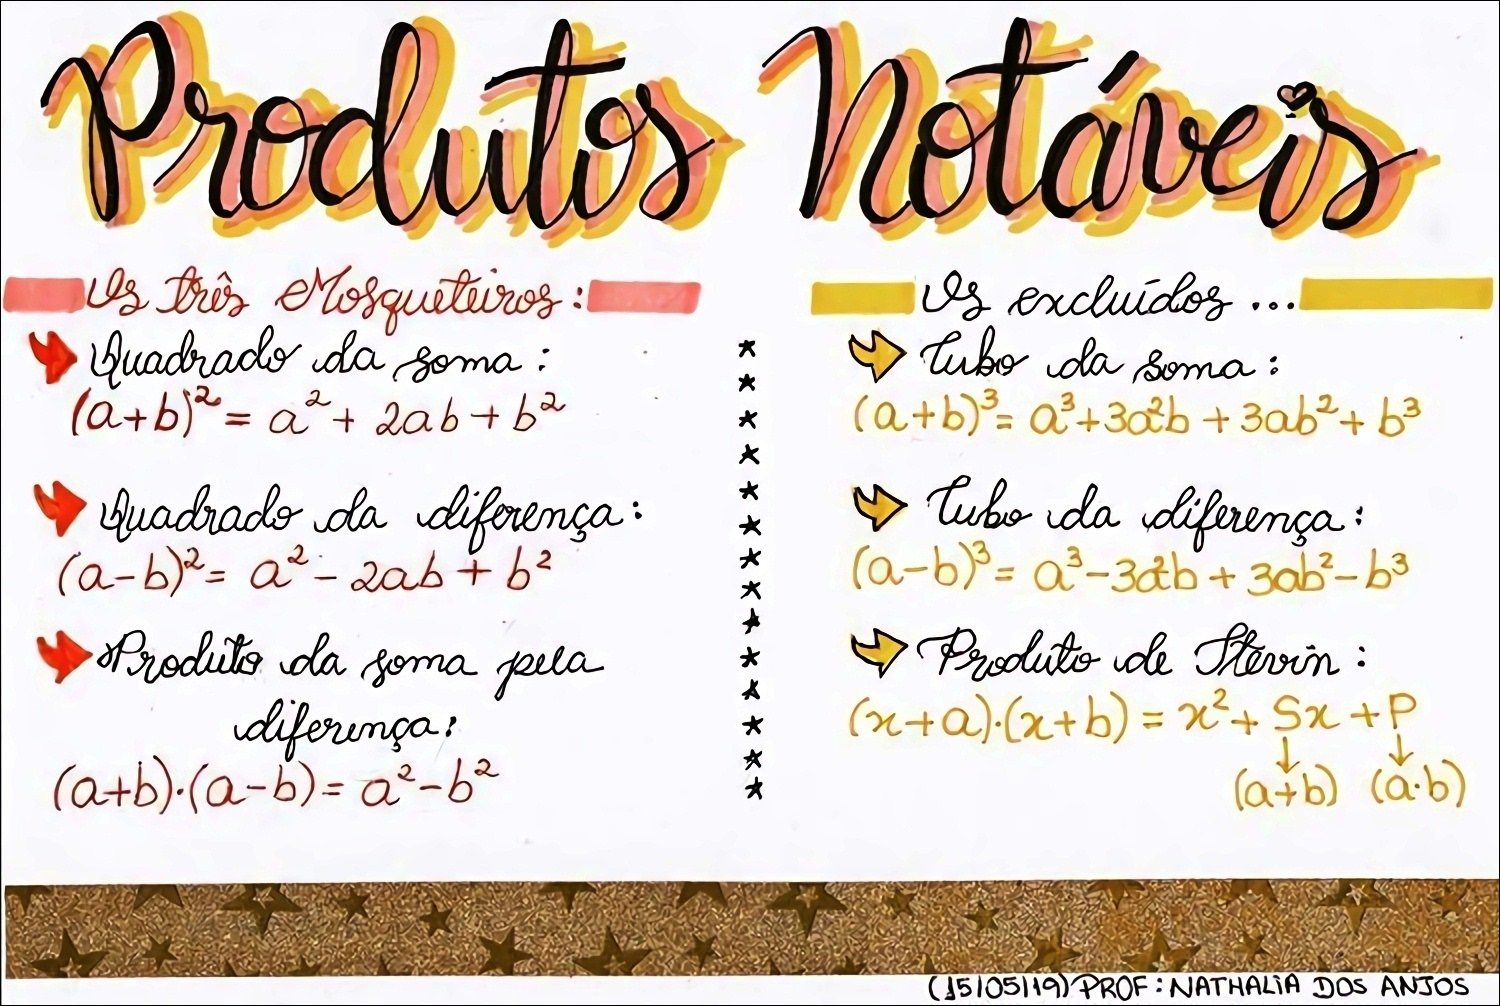 Produtos Notáveis
Os três Mosqueteiros:
Quadrado da soma:
(a+b)² = a² + 2ab + b²
Quadrado da diferença:
(a-b)² = a² - 2ab + b²
Produto da soma pela
diferença:
(a+b)·(a-b) = a² - b²
Os excluídos ...
Cubo da soma:
(a+b)³ = a³+3a²b + 3ab² + b³
Cubo da diferença:
(a-b)³ = a³-3a²b + 3ab² - b³
Produto de Stevin:
(x+a)·(x+b) = x² + Sx + P
↓ ↓
(a+b) (a·b)
(15/05/19) PROF: NATHALIA DOS ANJOS